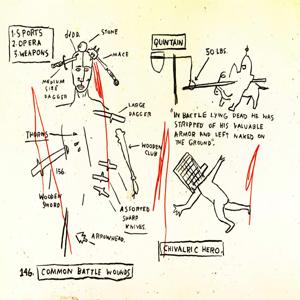 1. SPORTS
2. OPERA
3. WEAPONS
STONE
MACE
MEDIUM
SIZE
DAGGER
LARGE
DAGGER
THORNS
156.
WOODEN
CLUB
WOODEN
SWORD
ASSORTED
SHARP
KNIVES.
ARROWHEAD.
146. COMMON BATTLE WOUNDS
QUINTAIN
50 LBS.
"IN BATTLE LYING DEAD HE WAS
STRIPPED OF HIS VALUABLE
ARMOR AND LEFT NAKED ON
THE GROUND".
CHIVALRIC HERO.